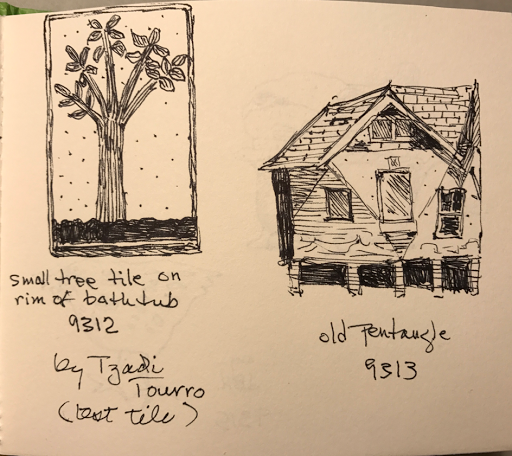 small tree tile on
rim of bathtub
9312
by Tzadi
Tourro
(test tile)
old Pentangle
9313